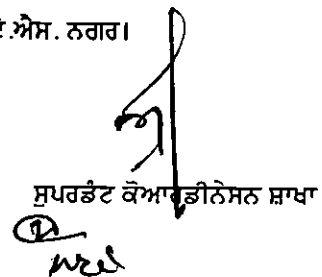 .ਐਸ. ਨਗਰ।
ਸੁਪਰਡੰਟ ਕੋਆਰਡੀਨੇਸਨ ਸ਼ਾਖਾ